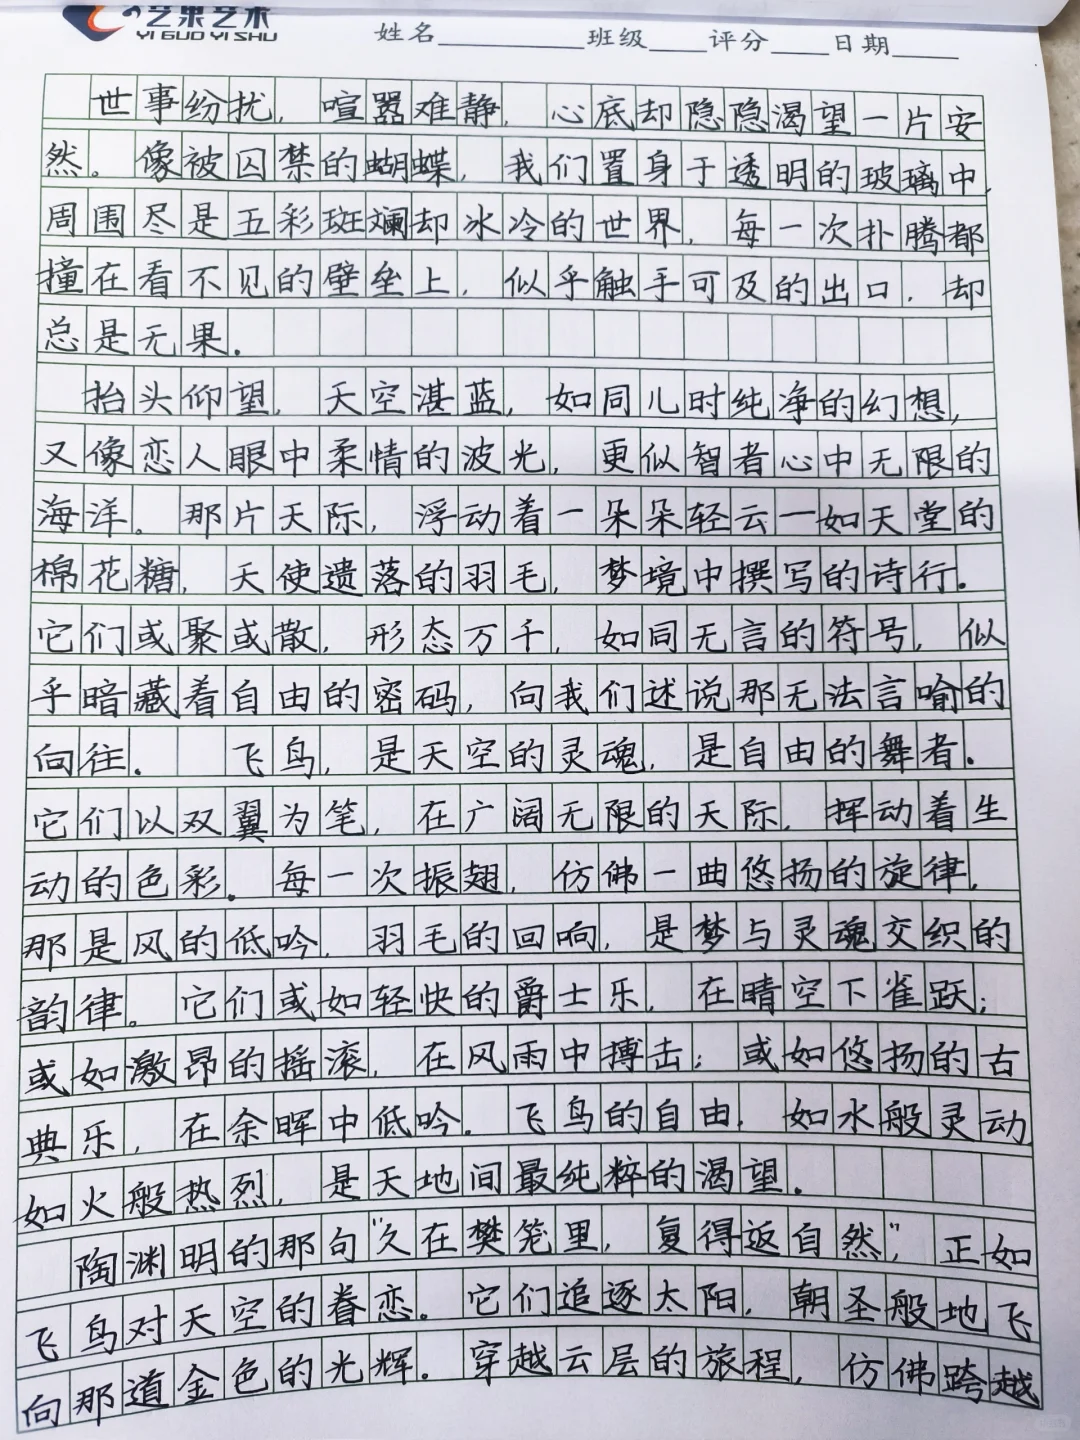 艺果艺术
YI GUO YI SHU
姓名 班级 评分 日期
世事纷扰，喧嚣难静，心底却隐隐渴望一片安
然。像被囚禁的蝴蝶，我们置身于透明的玻璃中，
周围尽是五彩斑斓却冰冷的世界，每一次扑腾都
撞在看不见的壁垒上，似乎触手可及的出口，却
总是无果.
抬头仰望，天空湛蓝，如同儿时纯净的幻想，
又像恋人眼中柔情的波光，更似智者心中无限的
海洋。那片天际，浮动着一朵朵轻云一如天堂的
棉花糖，天使遗落的羽毛，梦境中撰写的诗行.
它们或聚或散，形态万千，如同无言的符号，似
乎暗藏着自由的密码，向我们述说那无法言喻的
向往. 飞鸟，是天空的灵魂，是自由的舞者.
它们以双翼为笔，在广阔无限的天际，挥动着生
动的色彩.每一次振翅，仿佛一曲悠扬的旋律，
那是风的低吟，羽毛的回响，是梦与灵魂交织的
韵律。它们或如轻快的爵士乐，在晴空下雀跃；
或如激昂的摇滚，在风雨中搏击；或如悠扬的古
典乐，在余晖中低吟.飞鸟的自由，如水般灵动，
如火般热烈，是天地间最纯粹的渴望.
陶渊明的那句"久在樊笼里，复得返自然"，正如
飞鸟对天空的眷恋。它们追逐太阳，朝圣般地飞
向那道金色的光辉.穿越云层的旅程，仿佛跨越